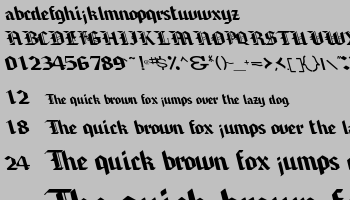 abcdefghijklmnopqrstuvwxyz
ABCDEFGHIJKLMNOPQRSTUVWX
0123456789
12 The quick brown fox jumps over the lazy dog
18 The quick brown fox jumps over the la
24 The quick brown fox jumps
The quick brown fox